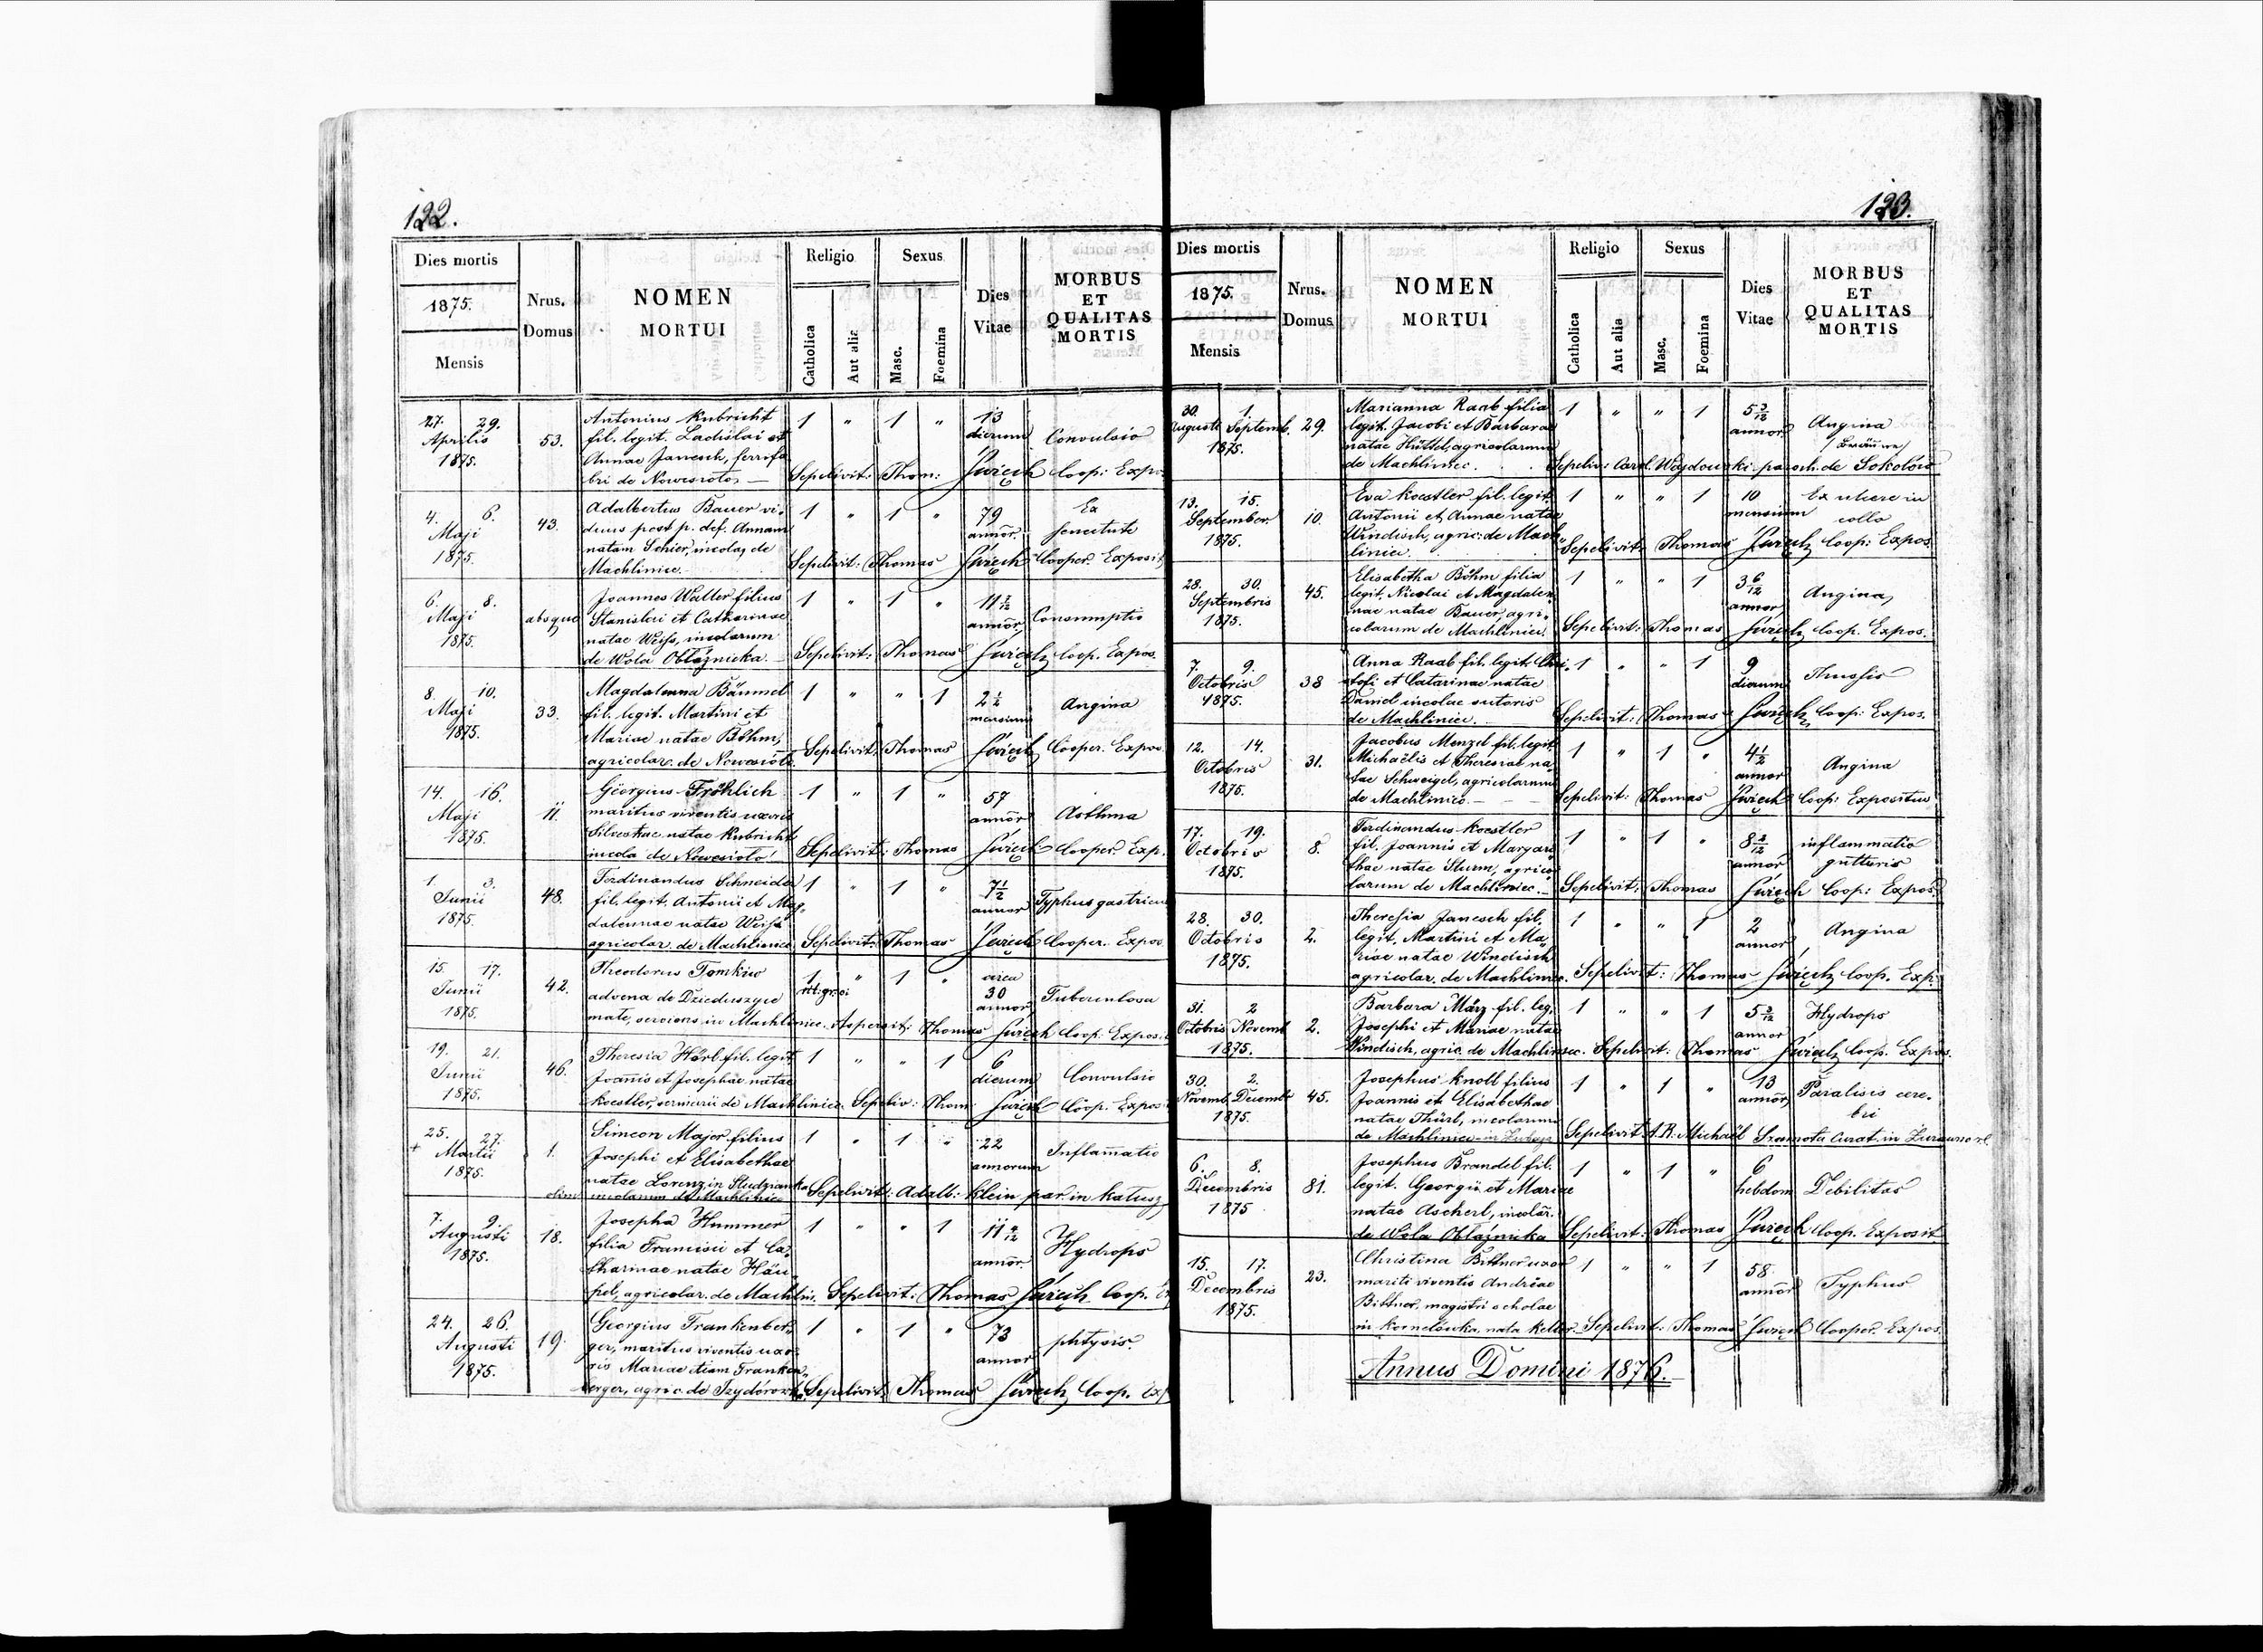 122.
Dies mortis
1875.
Mensis
Nrus.
Domus
NOMEN
MORTUI
Religio
Catholica
Aut alia
Sexus
Masc.
Foemina
Dies
Vitae
MORBUS
ET
QUALITAS
MORTIS
27. 29.
Aprilis
1875.
53.
Antonius Kubricht
fil. legit. Ladislai et
Annae Janesch, ferrifa
bri de Nowesioło
1 " 1 "
13
dierum
Convulsio
Sepelivit: Thom: Święch Coop: Expo
4. 6.
Maji
1875.
43.
Adalbertus Bauer vi-
duus post p. def. Annam
natam Schier, incola, de
Machliniec.
1 " 1 "
79
annor.
Ex
senectute
Sepelivit: Thomas Święch Cooper. Exposit
6. 8.
Maji
1875.
absque
Joannes Walter filius
Stanislai et Catharinae
natae Weiss, incolarum
de Wola Obłaźnicka.
1 " 1 "
annor,
Consumptio
Sepelivit: Thomas Święch Coop. Expos.
8. 10.
Maji
1875.
33.
Magdalenna Bäumel
fil. legit. Martini et
Mariae natae Böhm,
agricolar. de Nowesioło
1 " " 1
2 1/2
mensium
Angina
Sepelivit: Thomas Święch Cooper. Expos
14. 16.
Maji
1875.
11.
Georgius Fröhlich
maritus viventis uxoris
natae Kubricht
incola de Nowesioło
1 " 1 "
57
annor
Asthma
Sepelivit: Thomas Święch Cooper. Exp.
1. 3.
Junii
1875.
48.
Ferdinandus Schneider
fil. legit. Antonii et Mag-
dalennae natae Weiss
agricolar. de Machliniec
1 " 1 "
7 1/2
annor
Typhus gastricus
Sepelivit: Thomas Święch Cooper. Expos
15. 17.
Junii
1875.
42.
Theodorus Tomkiw
advena de Dzieduszyce
mate, serviens in Machliniec. Aspersit: Thomas Święch Coop: Expos.
1 " 1 "
rit. gr.
circa
30
annor,
Tuberculosa
19. 21.
Junii
1875.
46.
Theresia Hörl fil. legit.
Joannis et Josephae natae
Koestler, de Machliniec. Sepeliv: Thom: Święch Coop. Expos
1 " " 1
6
dierum
Convulsio
25. 27.
+ Martii
1875.
1.
Simeon Majer filius
Josephi et Elisabethae
natae Lorenz, in Studzianka
olim incolarum de Machliniec
1 " 1 "
22
annorum
Inflammatio
Sepelivit: Adalb: Klein par. in Kałusz
7. 9.
Augusti
1875.
18.
Josepha Hummer
filia Francisci et Ca-
tharinae natae Häu-
pel, agricolar. de Machlin. Sepelivit: Thomas Święch Coop.
1 " " 1
annor
Hydrops
24. 26.
Augusti
1875.
19.
Georgius Frankenber-
ger, maritus viventis uxo-
ris Mariae etiam Franken-
berger, agric. de Izydorówka. Sepelivit: Thomas Święch Coop. Exp
1 " 1 "
73
annor
phtysis.
123.
Dies mortis
1875.
Mensis
Nrus.
Domus
NOMEN
MORTUI
Religio
Catholica
Aut alia
Sexus
Masc.
Foemina
Dies
Vitae
MORBUS
ET
QUALITAS
MORTIS
30. 1.
Augusti Septemb.
1875.
29.
Marianna Raab filia
legit. Jacobi et Barbarae
natae Hüttel, agricolarum
de Machliniec.
1 " " 1
5 3/12
annor
Angina
Sepeliv: Carol. Wajdowski paroch. de Sokołów
13. 15.
September.
1875.
10.
Eva Koestler fil. legit.
Antonii et Annae natae
Windisch, agric: de Mach-
liniec.
1 " " 1
10
mensium
Ex ulcere in
collo
Sepelivit: Thomas Święch Coop: Expos.
28. 30.
Septembris
1875.
45.
Elisabetha Böhm filia
legit. Nicolai et Magdalen-
nae natae Bauer, agri-
colarum de Machliniec.
1 " " 1
3 6/12
annor
Angina,
Sepelivit: Thomas Święch Coop. Expos.
7. 9.
Octobris
1875.
38
Anna Raab fil. legit. Chri-
stofi et Catarinae natae
Daniel incolae sutoris
de Machliniec.
1 " " 1
9
dierum
Thussis
Sepelivit: Thomas Święch Coop: Expos.
12. 14.
Octobris
1875.
31.
Jacobus Menzel fil. legit.
Michaëlis et Theresiae na-
tae Schweigel, agricolarum
de Machliniec.
1 " 1 "
4 1/2
annor
Angina
Sepelivit: Thomas Święch Coop: Expositus
17. 19.
Octobris
1875.
8.
Ferdinandus Koestler
fil. Joannis et Margare-
thae natae Sturm, agrico-
larum de Machliniec.
1 " 1 "
annor
inflammatio
gutturis
Sepelivit: Thomas Święch Coop: Expos.
28. 30.
Octobris
1875.
2.
Theresia Janesch fil.
legit. Martini et Ma-
riae natae Windisch
agricolar. de Machliniec. Sepelivit: Thomas Święch Coop. Exp:
1 " " 1
2
annor
Angina
31. 2
Octobris Novemb
1875.
2.
Barbara März fil. leg.
Josephi et Mariae natae
Windisch, agric. de Machliniec. Sepelivit: Thomas Święch Coop. Expos.
1 " " 1
5 3/12
annor
Hydrops
30. 2.
Novemb. Decemb
1875.
45.
Josephus Knoll filius
Joannis et Elisabethae
natae Thürl, incolarum
de Machliniec
1 " 1 "
13
annor,
Paralisis cere-
bri
Sepelivit: A.R. Michaël Curat. in
6. 8.
Decembris
1875
81.
Josephus Brandel fil.
legit. Georgii et Mariae
natae Ascherl, incolar.
de Wola Obłaźnicka
1 " 1 "
6
hebdom
Debilitas
Sepelivit: Thomas Święch Coop. Exposit
15. 17.
Decembris
1875.
23.
Christina Bittner uxor
mariti viventis Andreae
Bittner, magistri scholae
in Kornelówka, nata Keller. Sepelivit: Thomas Święch Cooper. Expos.
1 " " 1
58
annor
Typhus
Annus Domini 1876.